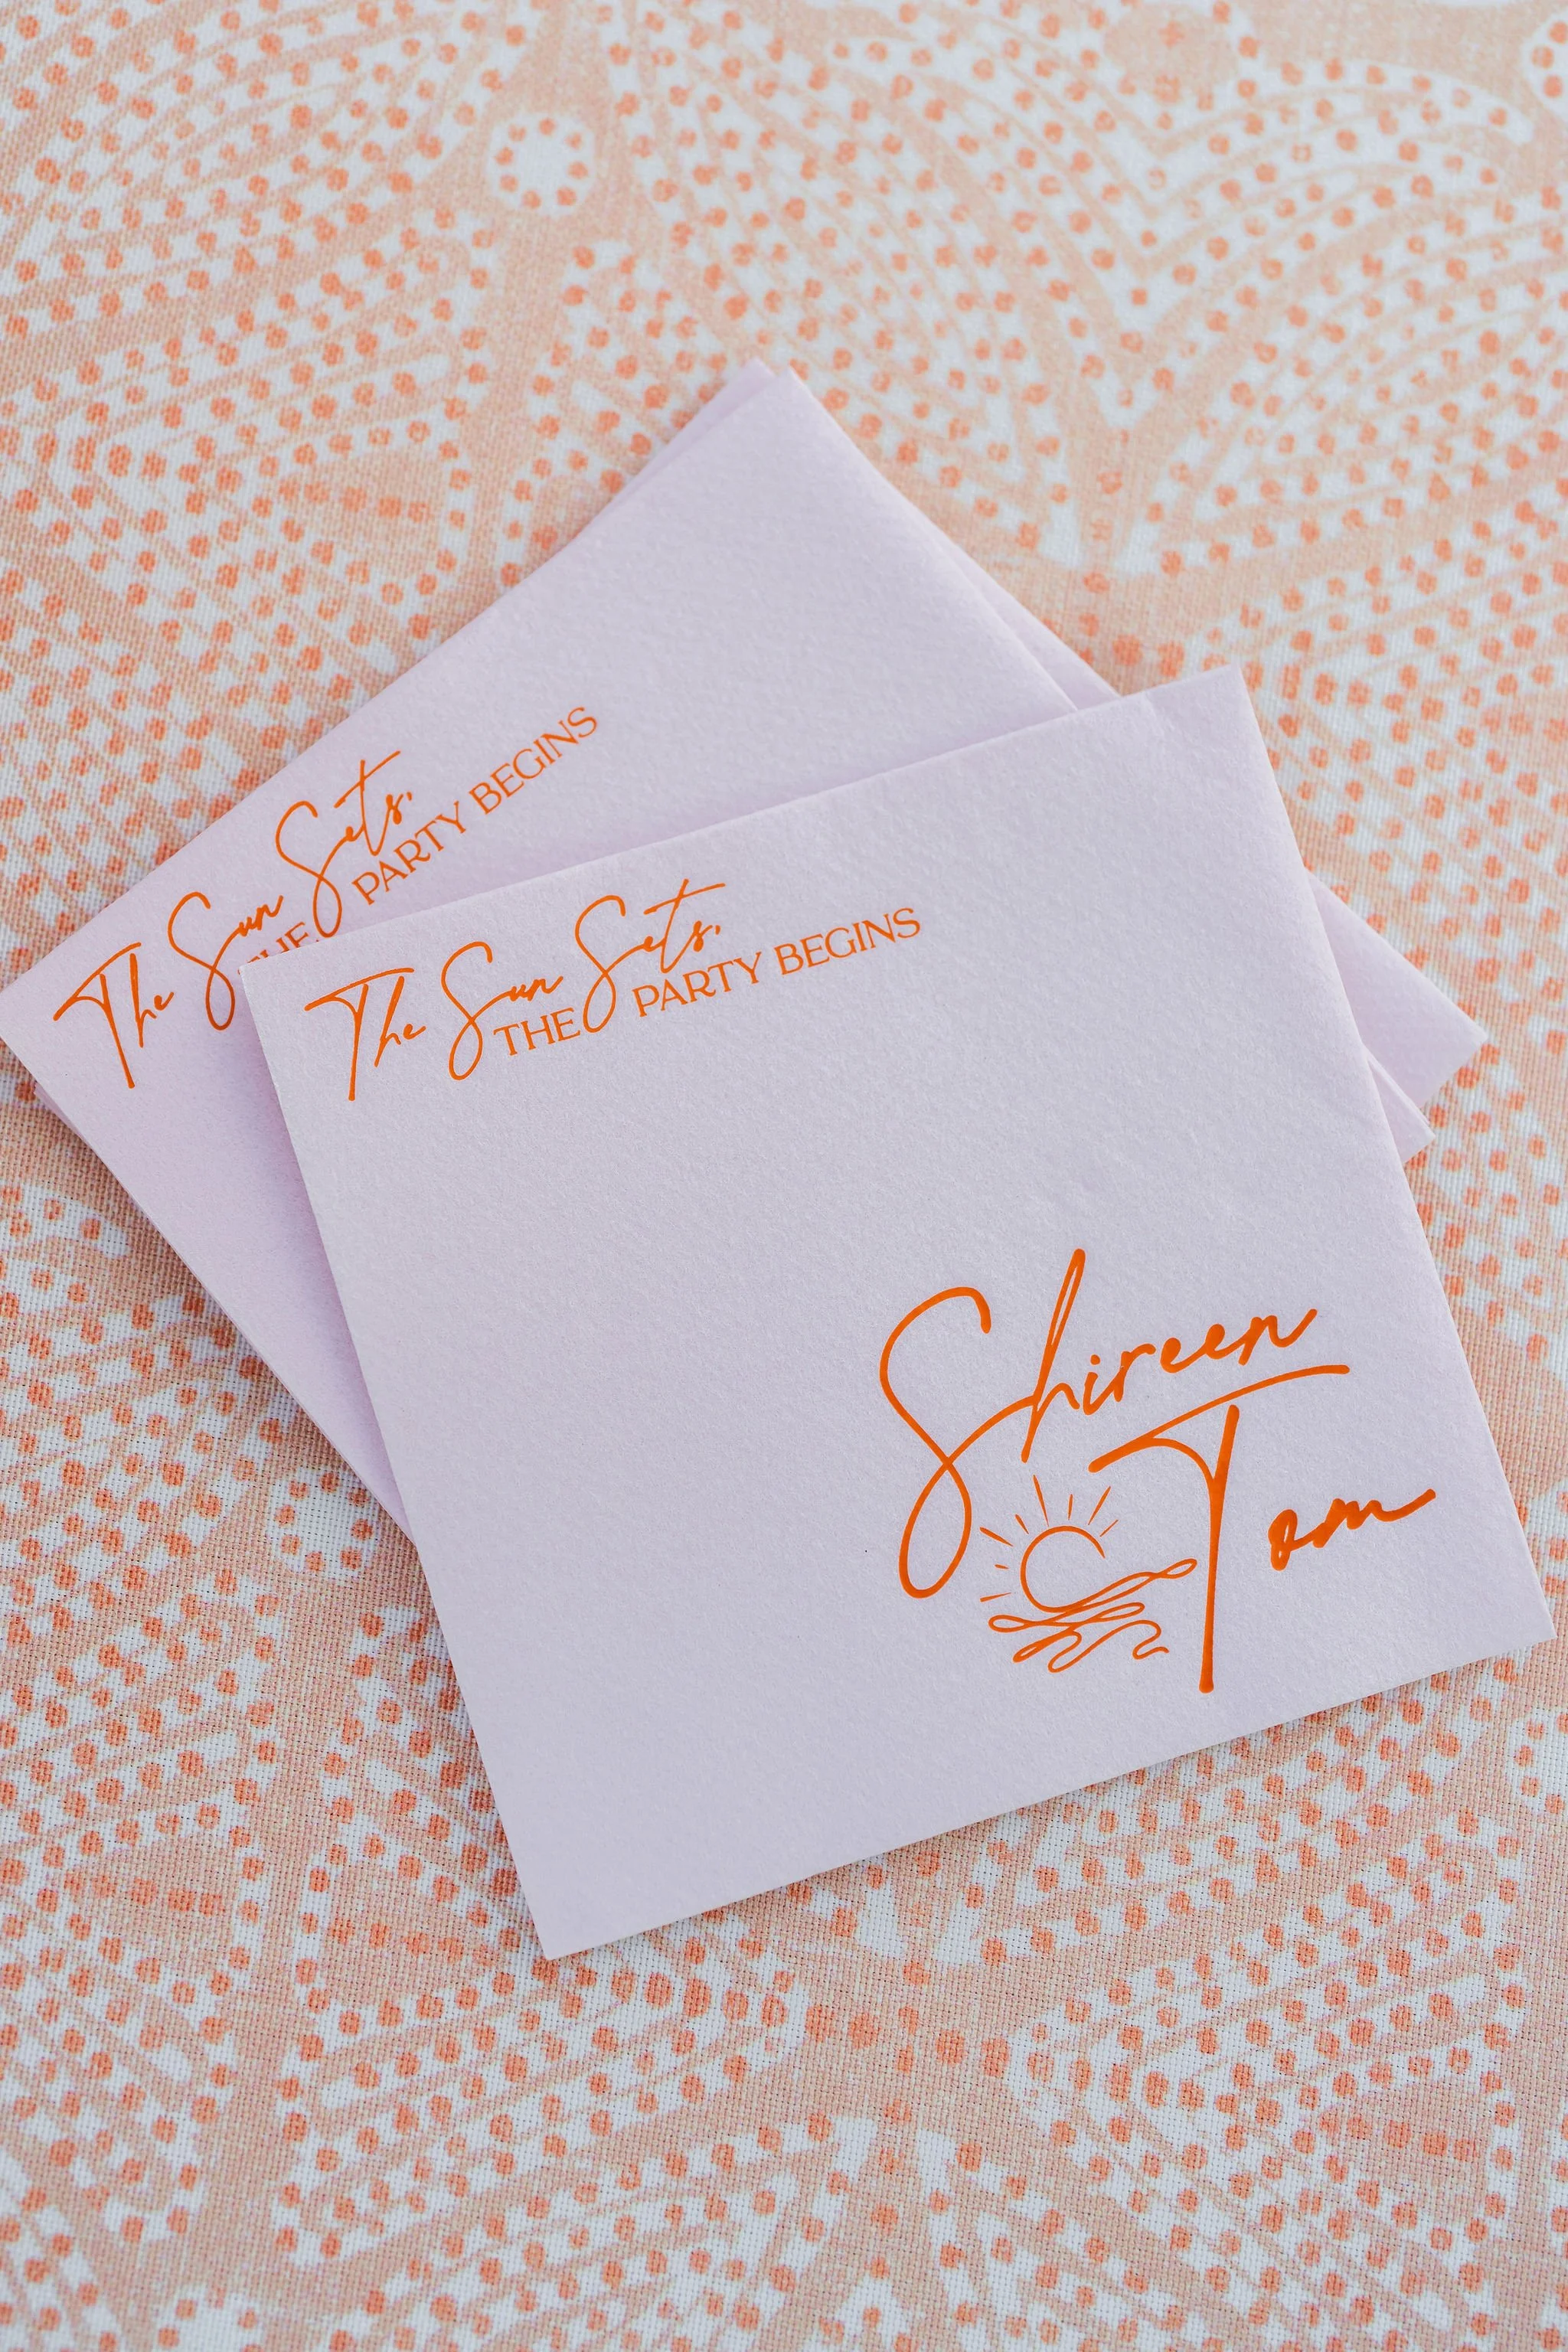 The Sun Sets,
THE PARTY BEGINS
The Sun Sets,
THE PARTY BEGINS
Shireen
Tom